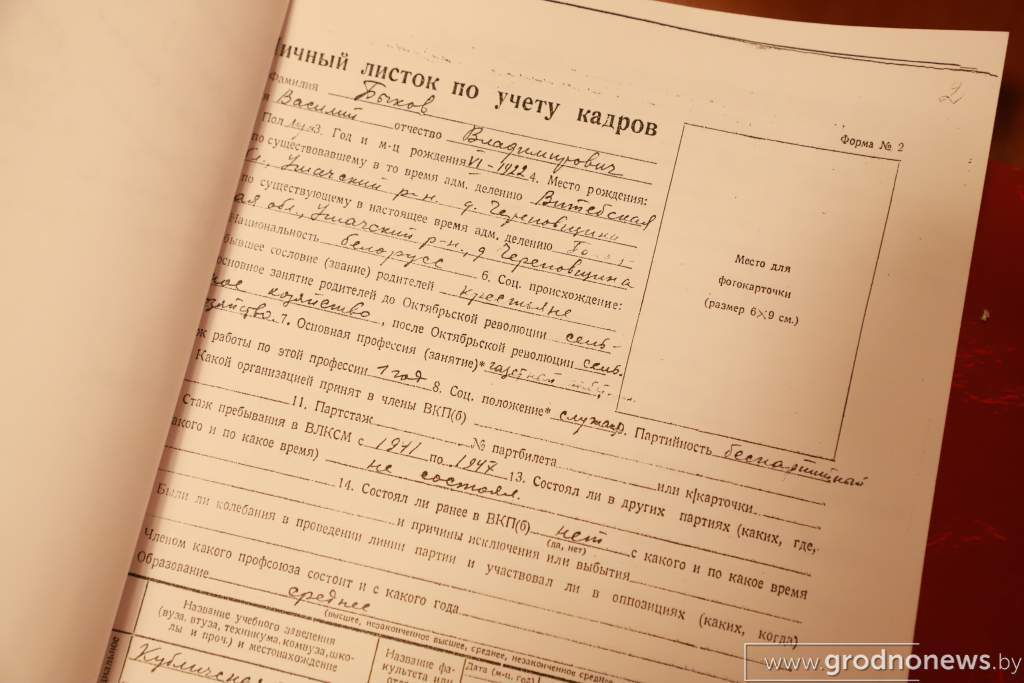 2
Личный листок по учету кадров
Форма № 2
Фамилия Быков
Василий отчество Владимирович
Пол муж 3. Год и м-ц рождения VI - 1922 4. Место рождения:
по существовавшему в то время адм. делению Витебская
Ушачский р-н. д. Череповщина
по существующему в настоящее время адм. делению
ая обл., Ушачский р-н, д. Череповщина
Национальность белорусс 6. Соц. происхождение:
бывшее сословие (звание) родителей крестьяне
основное занятие родителей до Октябрьской революции сель-
ное хозяйство, после Октябрьской революции сель.
хозяйство. 7. Основная профессия (занятие)* газетный
работы по этой профессии 1 год 8. Соц. положение* служащ. 9. Партийность беспартийный
Какой организацией принят в члены ВКП(б)
11. Партстаж № партбилета или к|карточки
Стаж пребывания в ВЛКСМ с 1941 по 1947 13. Состоял ли в других партиях (каких, где,
какого и по какое время) не состоял.
14. Состоял ли ранее в ВКП(б) нет с какого и по какое время
(да, нет)
и причины исключения или выбытия
Были ли колебания в проведении линии партии и участвовал ли в оппозициях (каких, когда)
Членом какого профсоюза состоит и с какого года
Образование среднее
(высшее, незаконченное высшее, среднее, незаконченное среднее
Название учебного заведения
(вуза, втуза, техникума, комвуза, шко-
лы и проч.) и местонахождение
Название фа-
культета или
Дата (м-ц, год)
Место для
фотокарточки
(размер 6×9 см.)
www.grodnonews.by